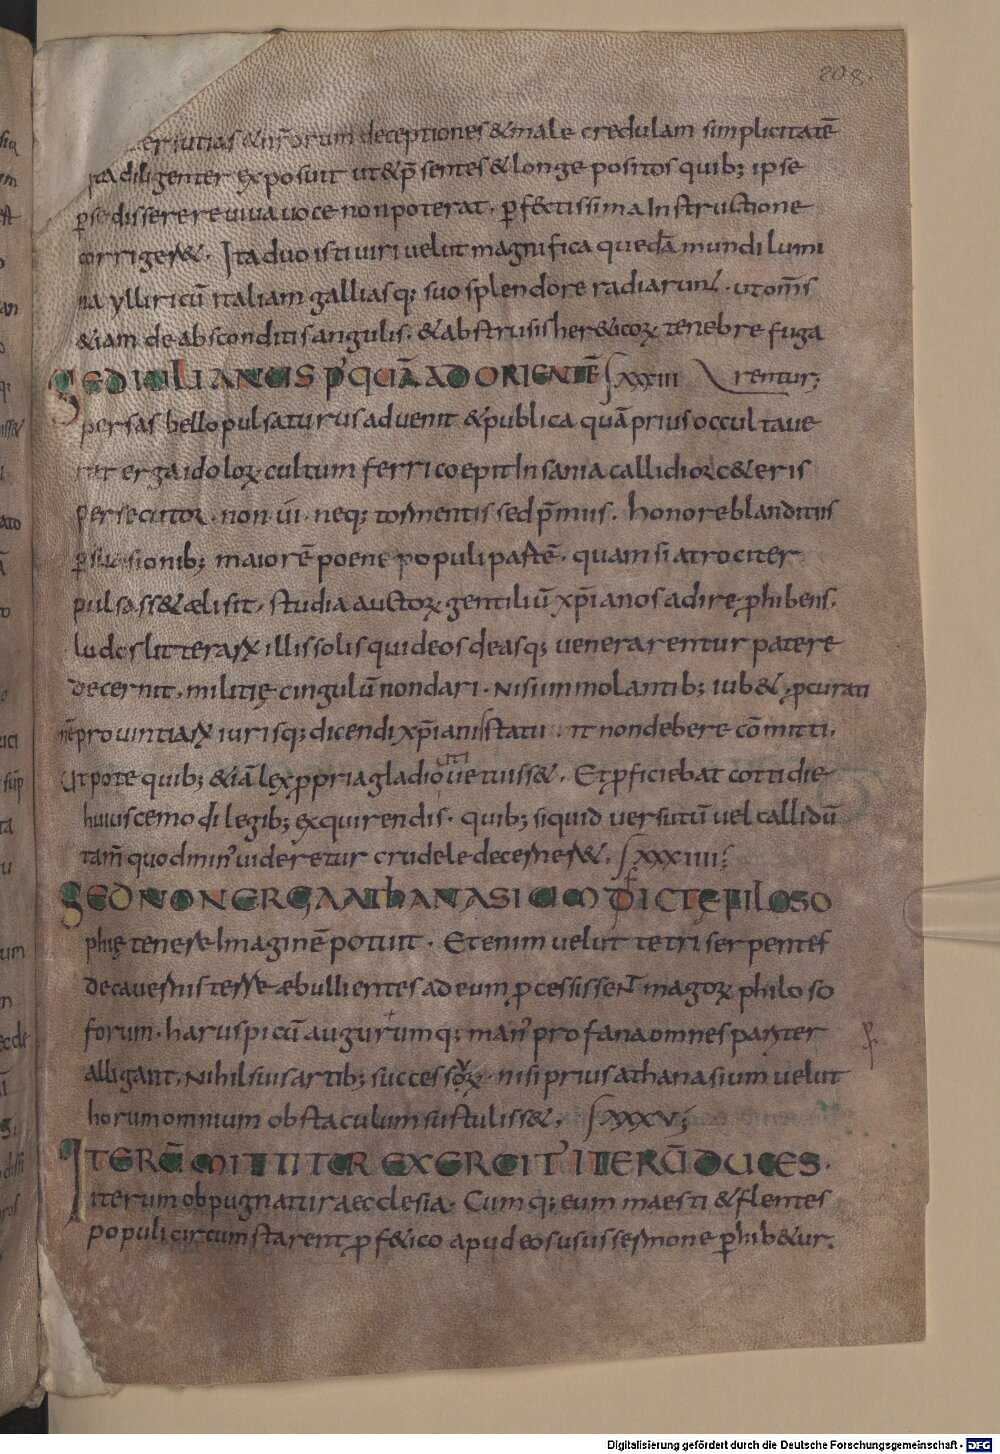 208.
uersutias &uirorum deceptiones &male credulam simplicitatē
ita diligenter exposuit ut&p̄sentes &longe positos quib; ipse
p̲se disserere uiua uoce nonpoterat. p̲f&ctissima Instructione
corriger&. Ita duo isti uiri uelut magnifica quedā mundi lumi
na ylliricū italiam galliasq; suo splendore radiarunt. utom̄s
&iam de absconditis angulis. &abstrusis her&icoꝝ tenebre fuga
SEDIULIANUS P'QUĀADORIENTĒ ſxxxiii rentur;
persas bello pulsaturus aduenit &publica quā prius occultaue
rat ergaidoloꝝ cultum ferri coepit Insania callidior c&eris
persecutor. non ui neq; tormentis sed p̄miis. honore blanditiis
p̲suasionib; maiorē poene populi partē. quam si atrociter
pulsass& ælisit. studia auctoꝝ gentiliū xp̄ianos adire ꝓhibens.
ludos litteraꝝ illis solis qui deos deasq; uenerarentur patere
decernit. militię cingulū nondari. Nisi immolantib; iub&. ꝓcurati
onē prouintiaꝝ iurisq; dicendi xp̄ianis statuit nondebere cōmitti.
Utpote quib; &iā lex ꝓpria gladio uti uetuiss&. Et ꝓficiebat cottidie
huiuscemodi legib; exquirendis. quib; siquid uersutū uel callidū
tam̄ quodmin' uideretur crudele decerner&. ſxxxiiii;
SEDNONERGAATHANASIUM DICTEPILOSO
phię tenere Imaginē potuit. Etenim uelut tetri serpentes
decauernis terrę æbullientes adeum ꝓcessissent magoꝝ philoso
forum. haruspicū augurumq; man' profana omnes pariter
alligant. Nihil suis artib; successoꝝ. nisi prius athanasium uelut
horum omnium obstaculum sustuliss&. ſxxxv;
ITERŪ MITTITUR EXERCIT' ITERŪDUCES.
iterum obpugnatur aecclesia. Cumq; eum maesti &flentes
populi circumstarent ꝓf&ico apud eos usus sermone p̲hib&ur.
Digitalisierung gefördert durch die Deutsche Forschungsgemeinschaft - DFG